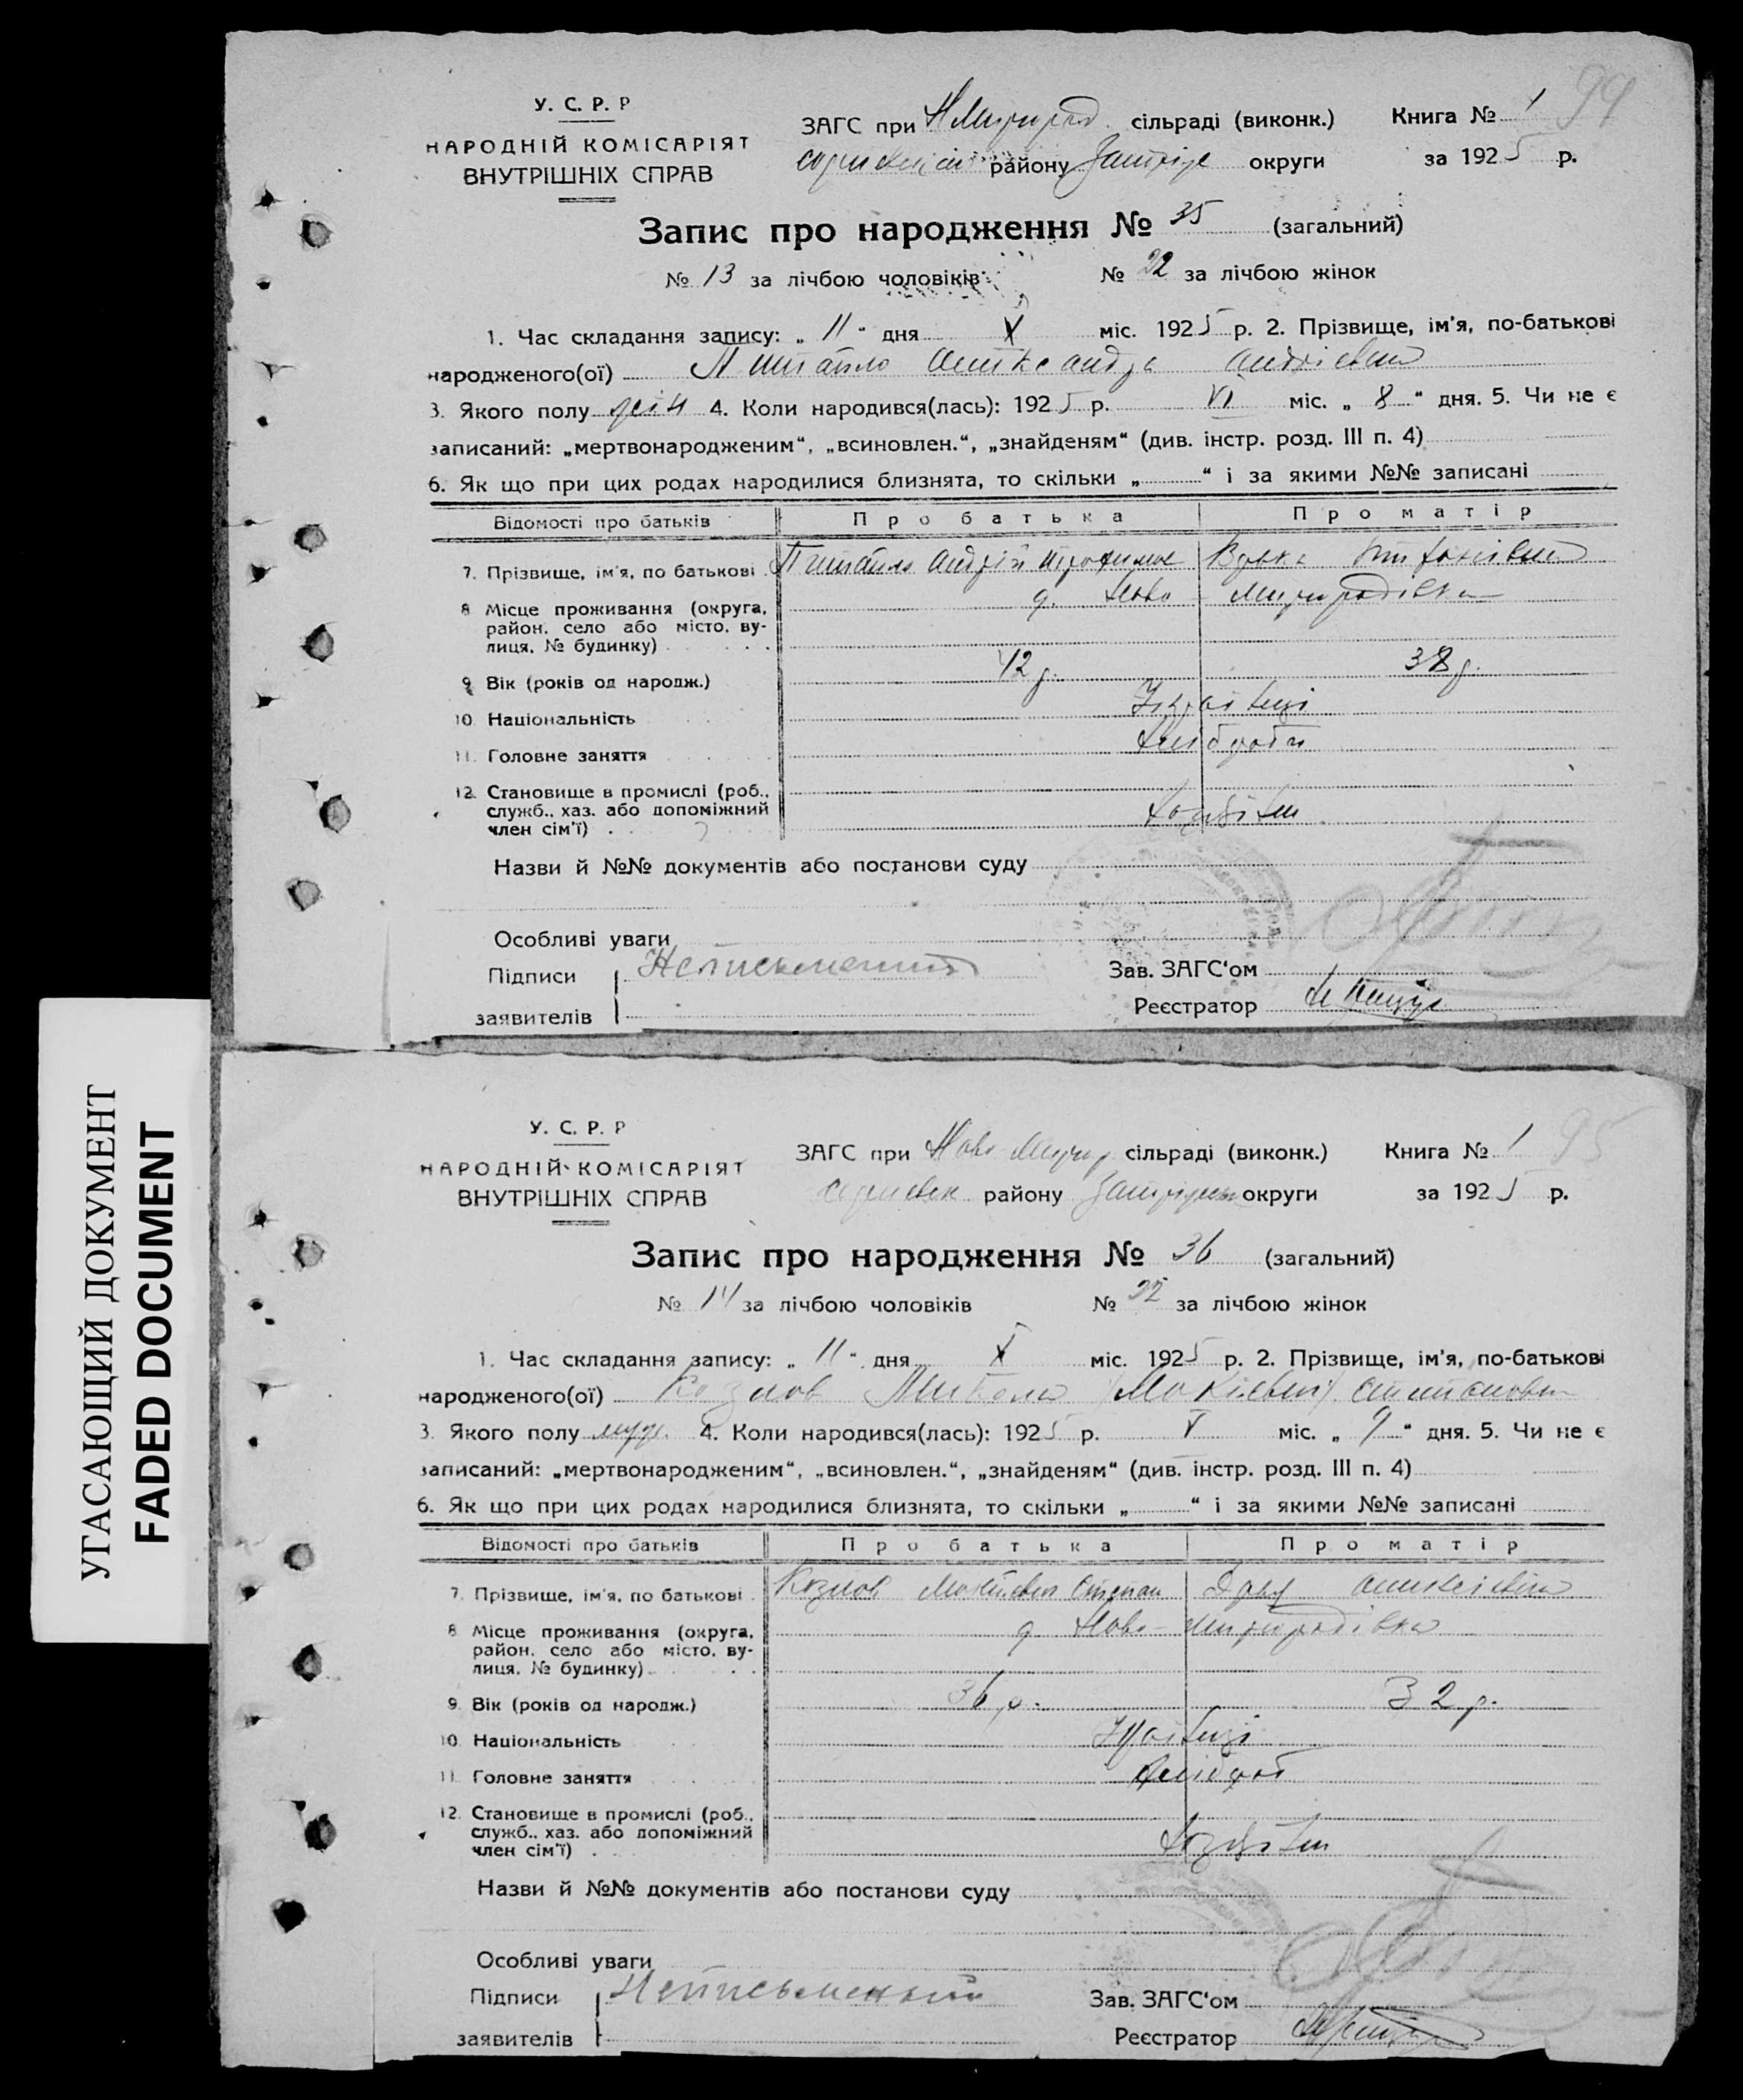 У. С. Р. Р
НАРОДНІЙ КОМІСАРІЯТ
ВНУТРІШНІХ СПРАВ
ЗАГС при сільраді (виконк.) Книга № 1 94
району округи за 1925 р.
Запис про народження № 35 (загальний)
№ 13 за лічбою чоловіків № 22 за лічбою жінок
1. Час складання запису: „ 11 “ дня X міс. 1925 р. 2. Прізвище, ім'я, по-батькові
народженого(ої) Андріевна
3. Якого полу жін 4. Коли народився(лась): 1925 р. VI міс. „ 8 “ дня. 5. Чи не є
записаний: „мертвонародженим“, „всиновлен.“, „знайденям“ (див. інстр. розд. III п. 4)
6. Як що при цих родах народилися близнята, то скільки „ “ і за якими №№ записані
Відомості про батьків Про батька Про матір
7. Прізвище, ім'я, по батькові Андрій
8 Місце проживання (округа, Ново - Миргородівка
район, село або місто, ву-
лиця, № будинку)
9. Вік (років од народж.) 42 р. 38 р.
10. Національність Українці
11. Головне заняття Хлібороби
12. Становище в промислі (роб.,
служб., хаз. або допоміжний
член сім'ї)
Назви й №№ документів або постанови суду
Особливі уваги
Підписи Неписьменний Зав. ЗАГС'ом
заявителів Реєстратор
УГАСАЮЩИЙ ДОКУМЕНТ
FADED DOCUMENT
У. С. Р. Р
НАРОДНІЙ КОМІСАРІЯТ
ВНУТРІШНІХ СПРАВ
ЗАГС при Ново сільраді (виконк.) Книга № 1 95
району округи за 1925 р.
Запис про народження № 36 (загальний)
№ 14 за лічбою чоловіків № 22 за лічбою жінок
1. Час складання запису: „ 11 “ дня X міс. 1925 р. 2. Прізвище, ім'я, по-батькові
народженого(ої) Козлов Микола
3. Якого полу муж. 4. Коли народився(лась): 1925 р. V міс. „ 9 “ дня. 5. Чи не є
записаний: „мертвонародженим“, „всиновлен.“, „знайденям“ (див. інстр. розд. III п. 4)
6. Як що при цих родах народилися близнята, то скільки „ “ і за якими №№ записані
Відомості про батьків Про батька Про матір
7. Прізвище, ім'я, по батькові Козлов Степан
8 Місце проживання (округа, Ново - Миргородівка
район, село або місто, ву-
лиця, № будинку)
9. Вік (років од народж.) 36 р. 32 р.
10. Національність
11. Головне заняття Хлібороб
12. Становище в промислі (роб.,
служб., хаз. або допоміжний
член сім'ї)
Назви й №№ документів або постанови суду
Особливі уваги
Підписи Неписьменний Зав. ЗАГС'ом
заявителів Реєстратор